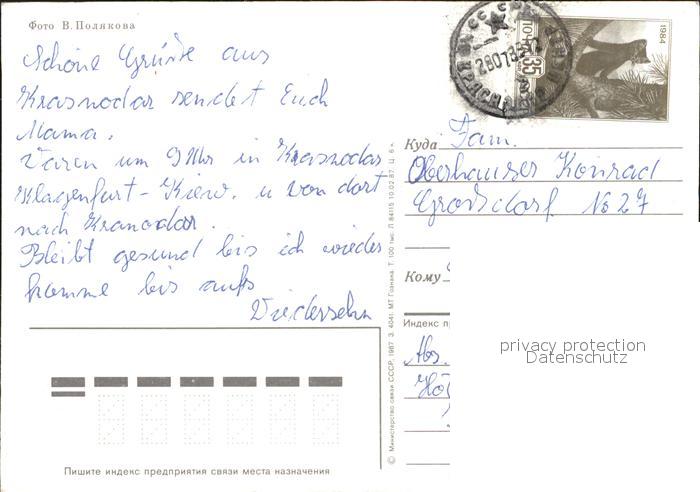 Фото В. Полякова
Schöne Grüße aus
Krasnodar sendet Euch
Mama.
Waren um 9 Uhr in Krasnodar
Klagenfurt - Kiew. u von dort
nach Kranodar.
Bleibt gesund bis ich wieder
komme bis aufs
Wiedersehn
Пишите индекс предприятия связи места назначения
© Министерство связи СССР, 1987 З. 4041. МТ Гознака. Т. 100 тыс. Л 84115 10.02.87. Ц. 6 к.
1984
35
Куда
Fam.
Oberhauser Konrad
Grossdorf No 27
Кому
Индекс
Abs.
privacy protection
Datenschutz